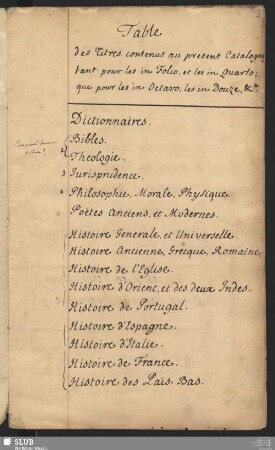 Table
des Titres contenus au present Catalogue
tant pour les in Folio, et les in Quarto,
que pour les in Octavo, les in Douze, &c.
Dictionnaires.
Bibles.
2 Theologie.
3 Jurisprudence.
4 Philosophie, Morale, Physique.
Poëtes Anciens, et Modernes.
Histoire Generale, et Universelle.
Histoire Ancienne, Grecque, Romaine,
Histoire de l'Eglise.
Histoire d'Orient, et des deux Indes.
Histoire de Portugal.
Histoire d'Espagne.
Histoire d'Italie.
Histoire de France.
Histoire des Païs Bas.
SLUB
Wir führen Wissen.